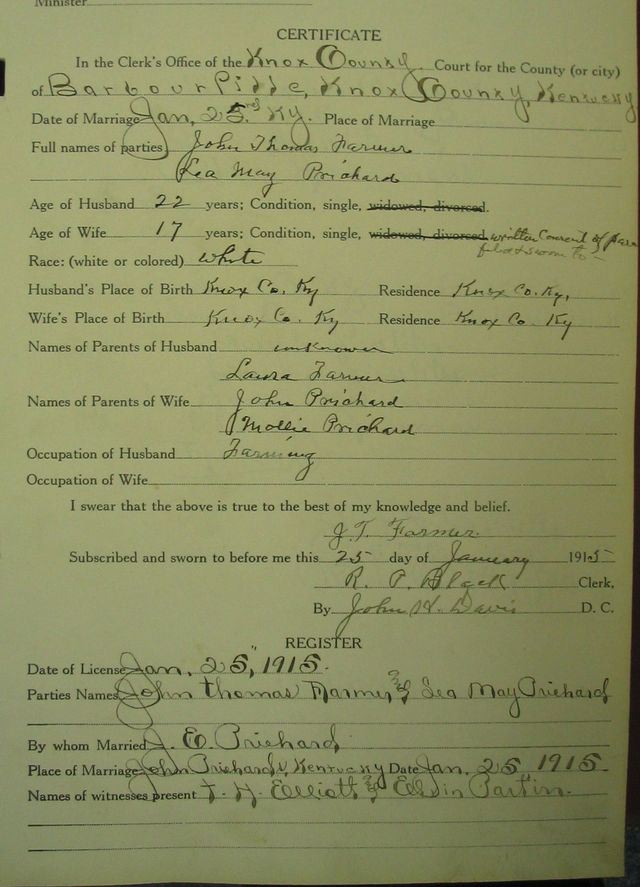 Minister
CERTIFICATE
In the Clerk's Office of the Knox County Court for the County (or city)
of Barbourville, Knox County, Kentucky
Date of Marriage Jan, 25. Ky. Place of Marriage
Full names of parties John Thomas Farmer
Lea May Prichard
Age of Husband 22 years; Condition, single, widowed, divorced.
Age of Wife 17 years; Condition, single, widowed, divorced written Consent of
filed & sworn to
Race: (white or colored) White
Husband's Place of Birth Knox Co. Ky Residence Knox Co. Ky,
Wife's Place of Birth Knox Co. Ky Residence Knox Co. Ky
Names of Parents of Husband unknown
Laura Farmer
Names of Parents of Wife John Prichard
Mollie Prichard
Occupation of Husband Farming
Occupation of Wife
I swear that the above is true to the best of my knowledge and belief.
J. T. Farmer.
Subscribed and sworn to before me this 25 day of January 1915
R. P. Black Clerk,
By John H. Davis D. C.
REGISTER
Date of License Jan, 25, 1915.
Parties Names John Thomas Farmer & Lea May Prichard
By whom Married J. E. Prichard
Place of Marriage John Prichards, Kentucky Date Jan, 25 1915
Names of witnesses present F. H. Elliott & Partin.